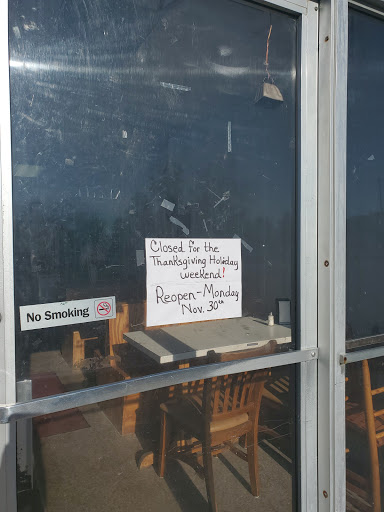 Closed for the
Thanksgiving Holiday
weekend!
Reopen - Monday
Nov. 30th
No Smoking